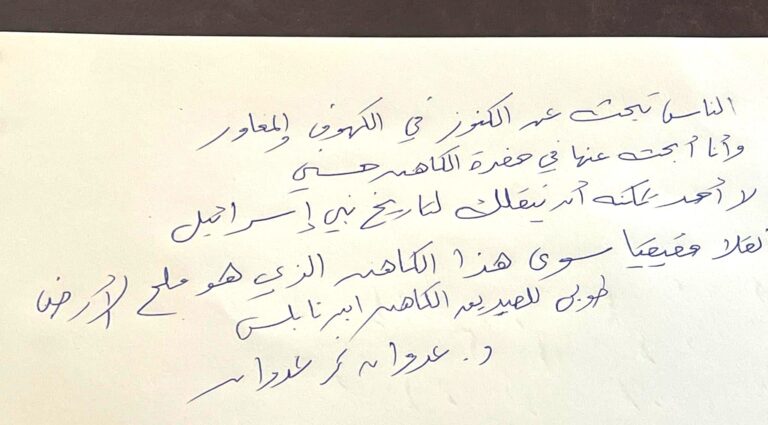 الناس تبحث عن الكنوز في الكهوف والمغاور
وأنا أبحث عنها في حضرة الكاهن حسني
لا أحد يمكنه أن ينقلك لتاريخ بني إسرائيل
نقلا حقيقيا سوى هذا الكاهن الذي هو ملح الأرض
طوبى للصديق الكاهن ابن نابلس
د. عدوان نمر عدوان